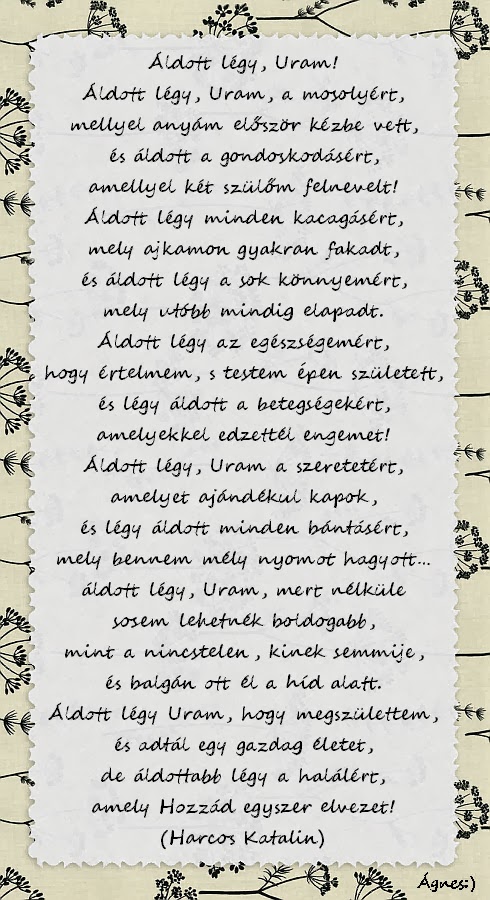 Áldott légy, Uram!
Áldott légy, Uram, a mosolyért,
mellyel anyám először kézbe vett,
és áldott a gondoskodásért,
amellyel két szülőm felnevelt!
Áldott légy minden kacagásért,
mely ajkamon gyakran fakadt,
és áldott légy a sok könnyemért,
mely utóbb mindig elapadt.
Áldott légy az egészségemért,
hogy értelmem, s testem épen született,
és légy áldott a betegségekért,
amelyekkel edzettél engemet!
Áldott légy, Uram a szeretetért,
amelyet ajándékul kapok,
és légy áldott minden bántásért,
mely bennem mély nyomot hagyott...
áldott légy, Uram, mert nélküle
sosem lehetnék boldogabb,
mint a nincstelen, kinek semmije,
és balgán ott él a híd alatt.
Áldott légy Uram, hogy megszülettem,
és adtál egy gazdag életet,
de áldottabb légy a halálért,
amely Hozzád egyszer elvezet!
(Harcos Katalin)
Ágnes:)